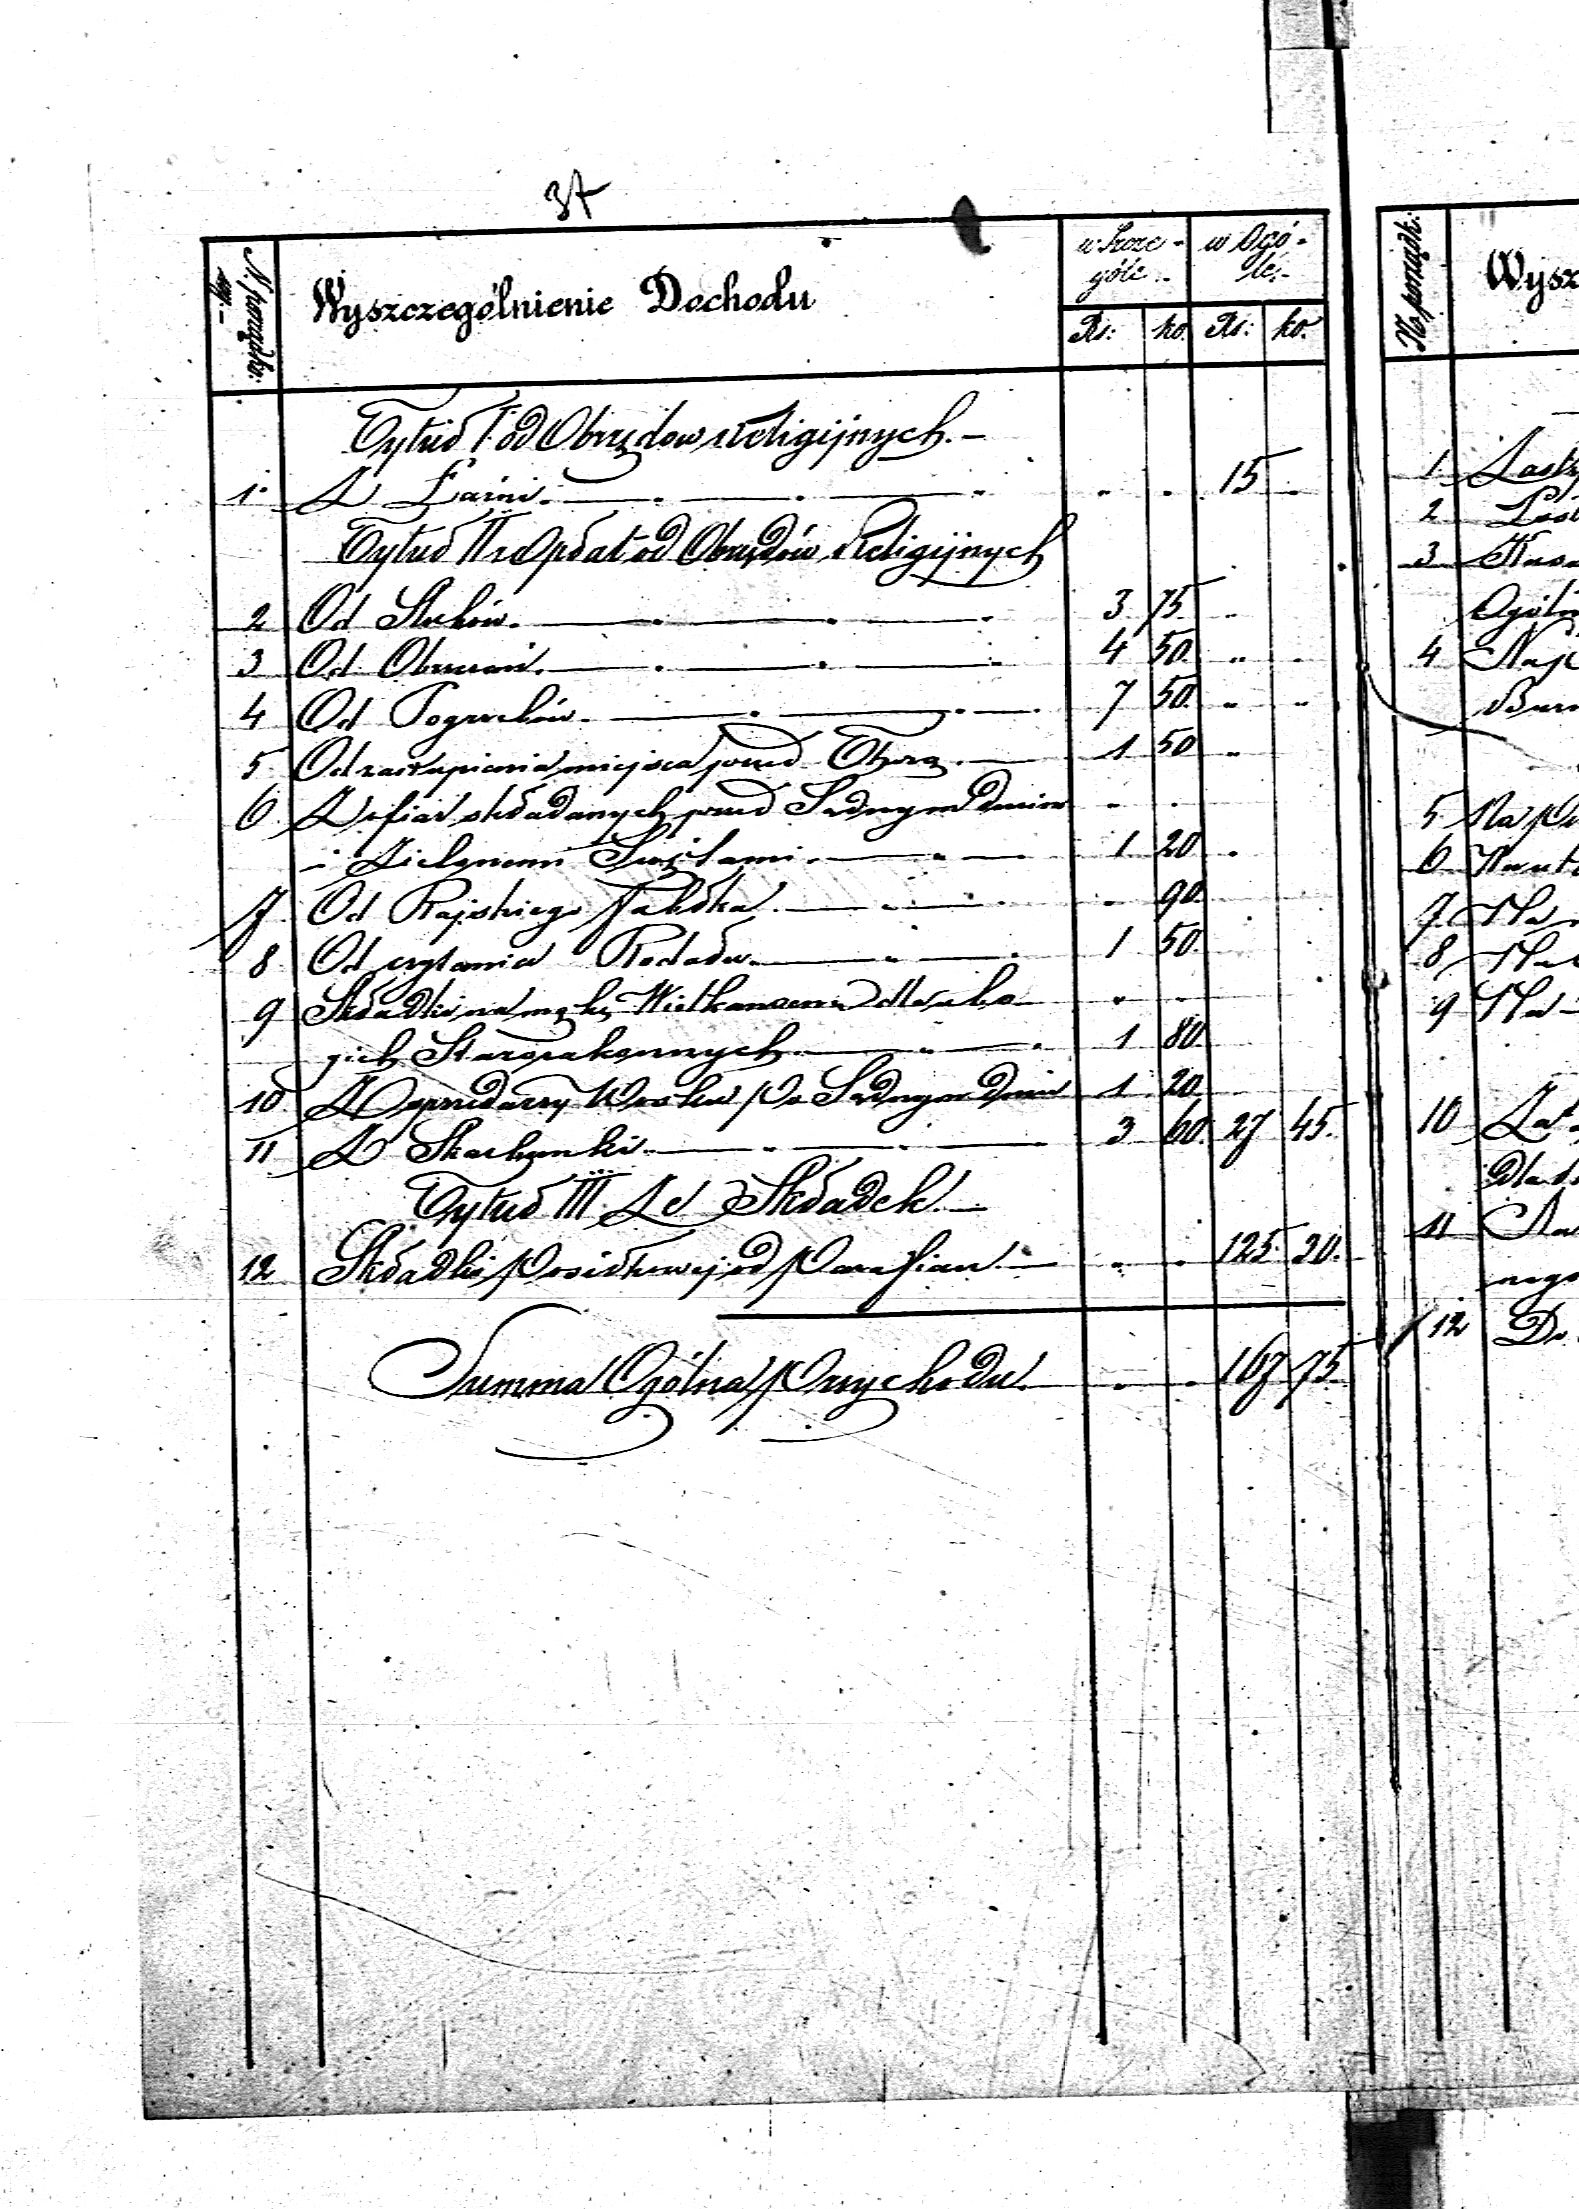 37
N. porządko: wy.
Wyszczególnienie Dochodu
w Szcze-góle
w Ogó-le.
Rs: ko. Rs: ko.
Tytuł I. od Obrzędow Religijnych.
1. Z Łaźni. 15
Tytuł II z Opłat od Obrzędów Religijnych
2 Od Ślubów. 3 75
3 Od Obrzezań. 4 50
4 Od Pogrzebów. 7 50
5 Od zastąpienia miejsca przed Thorą 1 50
6 Z ofiar składanych przed Sądnym Dniem
i Zielonemi Świętami 1 20
7 Od Rajskiego Jabłka 90
8 Od czytania Rodału 1 50
9 Składki na mąkę Wielkanocną dla ubo
gich Starozakonnych 1 80
10 Z sprzedaży Wosku po Sądnym Dniu 1 20
11 Z Skarbonki 3 60 27 45
Tytuł III Ze Składek
12 Składki Posiłkowej od Parafian 125 30
Summa Ogólna Przychodu 167 75
N. porządk:
Wysz
1
2
3
4
5
6
7
8
9
10
11
12